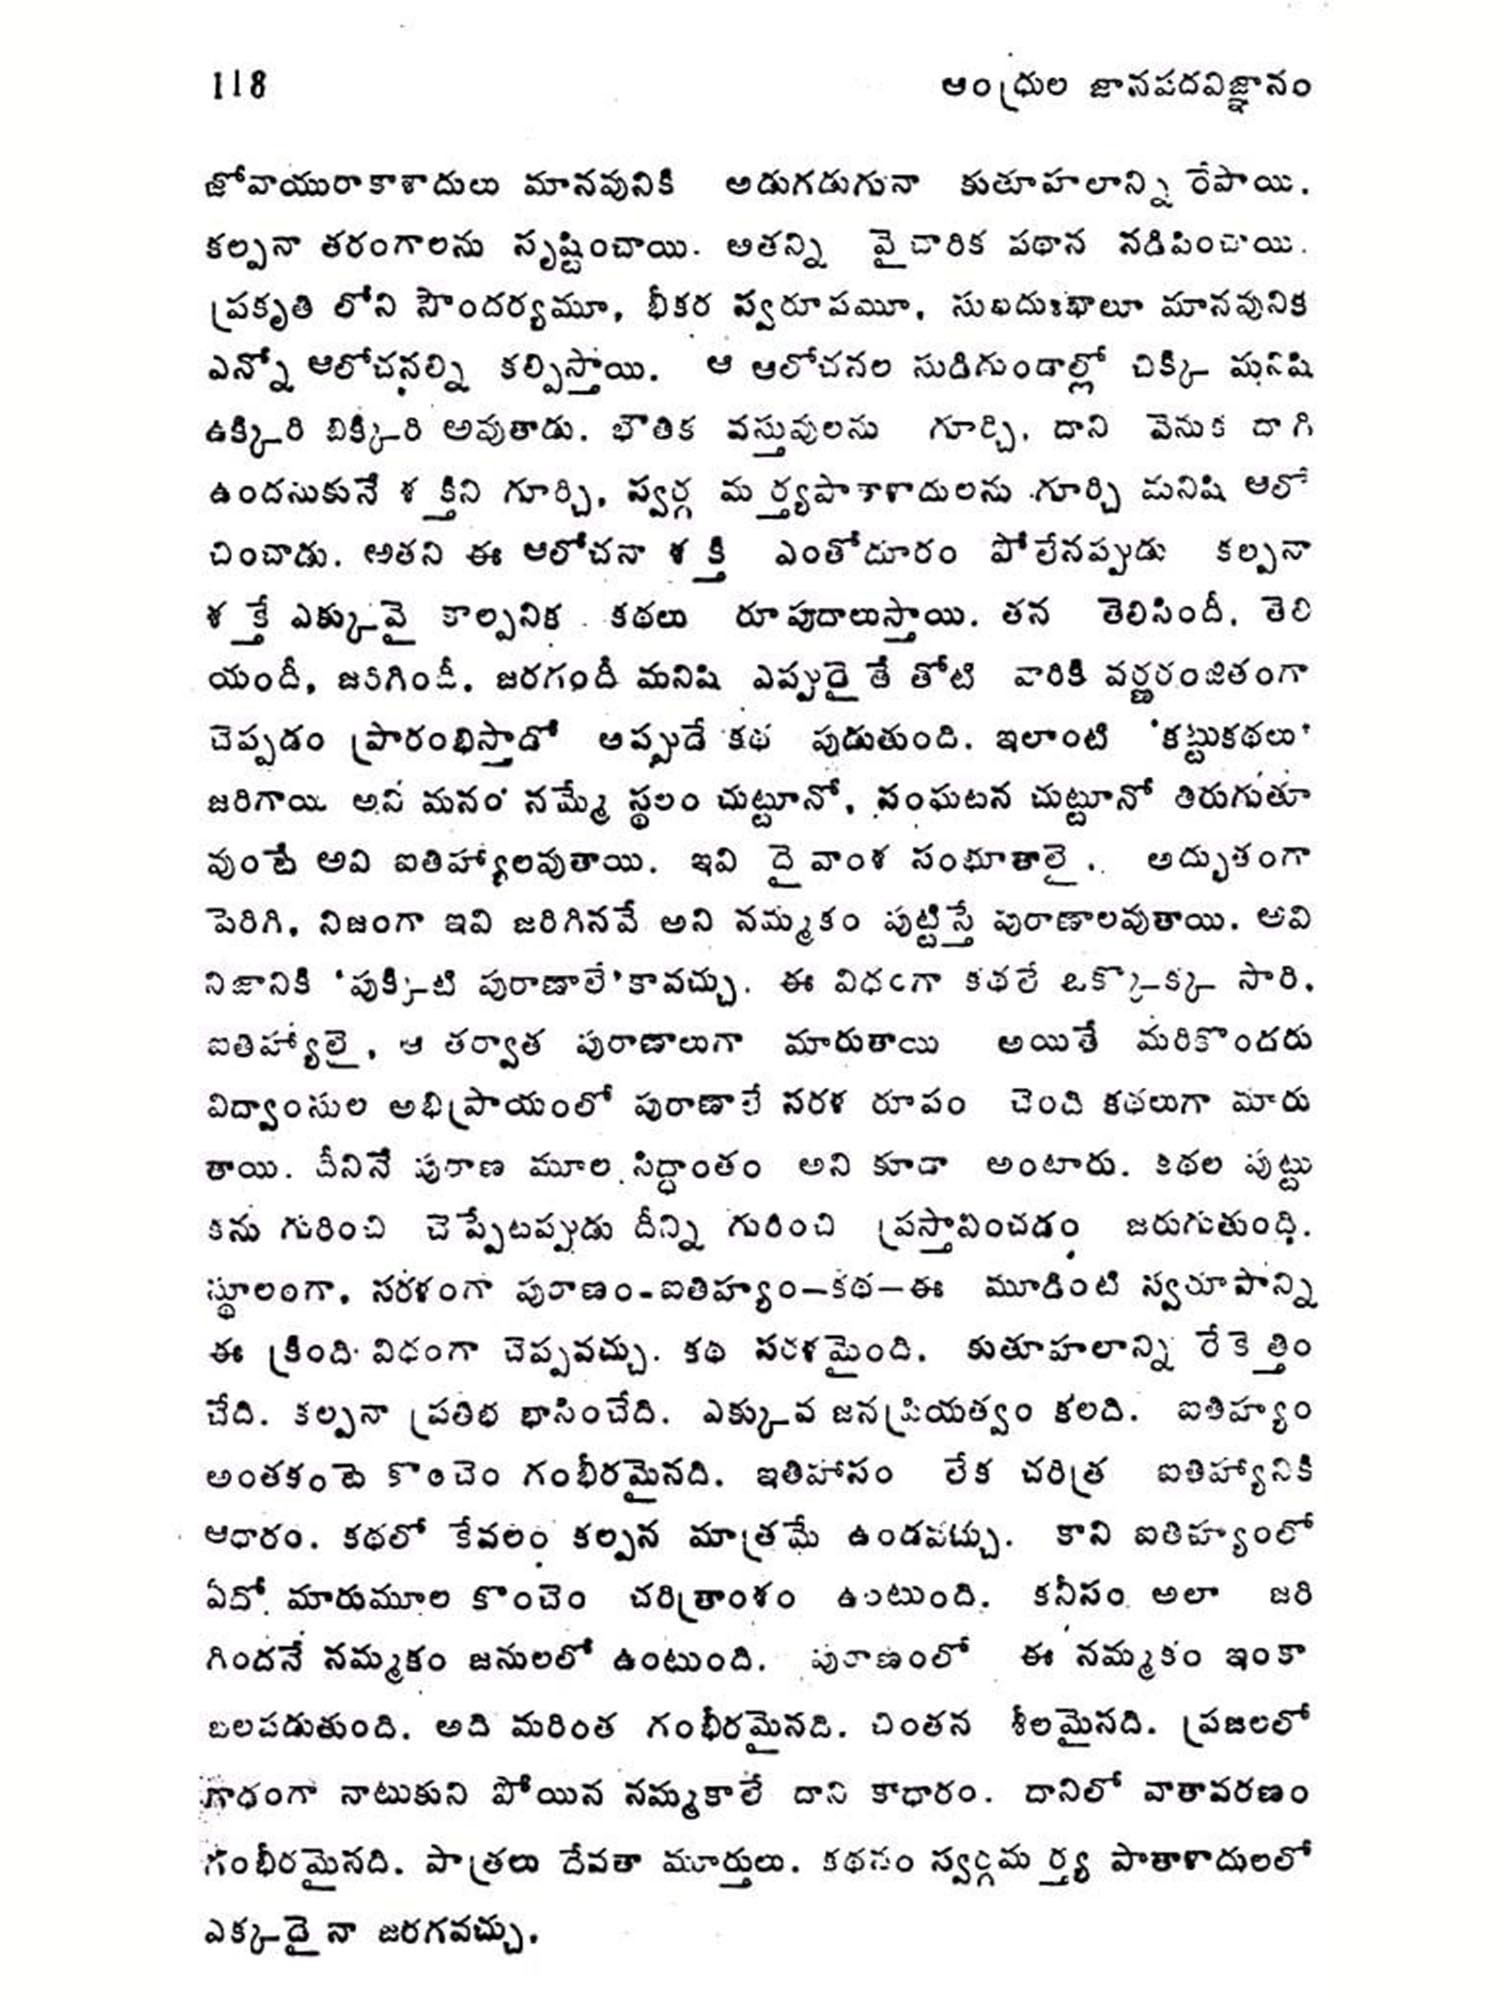 118 ఆంధ్రుల జానపదవిజ్ఞానం
జోవాయురాకాశాదులు మానవునికి అడుగడుగునా కుతూహలాన్ని రేపాయి.
కల్పనా తరంగాలను సృష్టించాయి. అతన్ని వైచారిక పథాన నడిపించాయి.
ప్రకృతి లోని సౌందర్యమూ, భీకర స్వరూపమూ, సుఖదుఃఖాలూ మానవునిక
ఎన్నో ఆలోచనల్ని కల్పిస్తాయి. ఆ ఆలోచనల సుడిగుండాల్లో చిక్కి మనిషి
ఉక్కిరి బిక్కిరి అవుతాడు. భౌతిక వస్తువులను గూర్చి, దాని వెనుక దాగి
ఉందనుకునే శక్తిని గూర్చి, స్వర్గ మర్త్యపాతాళాదులను గూర్చి మనిషి ఆలో
చించాడు. అతని ఈ ఆలోచనా శక్తి ఎంతోదూరం పోలేనప్పుడు కల్పనా
శక్తే ఎక్కువై కాల్పనిక కథలు రూపుదాలుస్తాయి. తన తెలిసిందీ, తెలి
యందీ, జరిగిందీ, జరగందీ మనిషి ఎప్పుడైతే తోటి వారికి వర్ణరంజితంగా
చెప్పడం ప్రారంభిస్తాడో అప్పుడే కథ పుడుతుంది. ఇలాంటి 'కట్టుకథలు'
జరిగాయి అని మనం నమ్మే స్థలం చుట్టూనో, సంఘటన చుట్టూనో తిరుగుతూ
వుంటే అవి ఐతిహ్యాలవుతాయి. ఇవి దైవాంశ సంభూతాలై, అద్భుతంగా
పెరిగి, నిజంగా ఇవి జరిగినవే అని నమ్మకం పుట్టిస్తే పురాణాలవుతాయి. అవి
నిజానికి 'పుక్కిటి పురాణాలే'కావచ్చు. ఈ విధంగా కథలే ఒక్కొక్క సారి,
ఐతిహ్యాలై, ఆ తర్వాత పురాణాలుగా మారుతాయి అయితే మరికొందరు
విద్వాంసుల అభిప్రాయంలో పురాణాలే సరళ రూపం చెంది కథలుగా మారు
తాయి. దీనినే పురాణ మూల సిద్ధాంతం అని కూడా అంటారు. కథల పుట్టు
కను గురించి చెప్పేటప్పుడు దీన్ని గురించి ప్రస్తావించడం జరుగుతుంది.
స్థూలంగా, సరళంగా పురాణం-ఐతిహ్యం—కథ—ఈ మూడింటి స్వరూపాన్ని
ఈ క్రింది విధంగా చెప్పవచ్చు. కథ సరళమైంది. కుతూహలాన్ని రేకెత్తిం
చేది. కల్పనా ప్రతిభ భాసించేది. ఎక్కువ జనప్రియత్వం కలది. ఐతిహ్యం
అంతకంటె కొంచెం గంభీరమైనది. ఇతిహాసం లేక చరిత్ర ఐతిహ్యానికి
ఆధారం. కథలో కేవలం కల్పన మాత్రమే ఉండవచ్చు. కాని ఐతిహ్యంలో
ఏదో మారుమూల కొంచెం చరిత్రాంశం ఉంటుంది. కనీసం అలా జరి
గిందనే నమ్మకం జనులలో ఉంటుంది. పురాణంలో ఈ నమ్మకం ఇంకా
బలపడుతుంది. అది మరింత గంభీరమైనది. చింతన శీలమైనది. ప్రజలలో
గాఢంగా నాటుకుని పోయిన నమ్మకాలే దాని కాధారం. దానిలో వాతావరణం
గంభీరమైనది. పాత్రలు దేవతా మూర్తులు. కథనం స్వర్గమర్త్య పాతాళాదులలో
ఎక్కడైనా జరగవచ్చు.